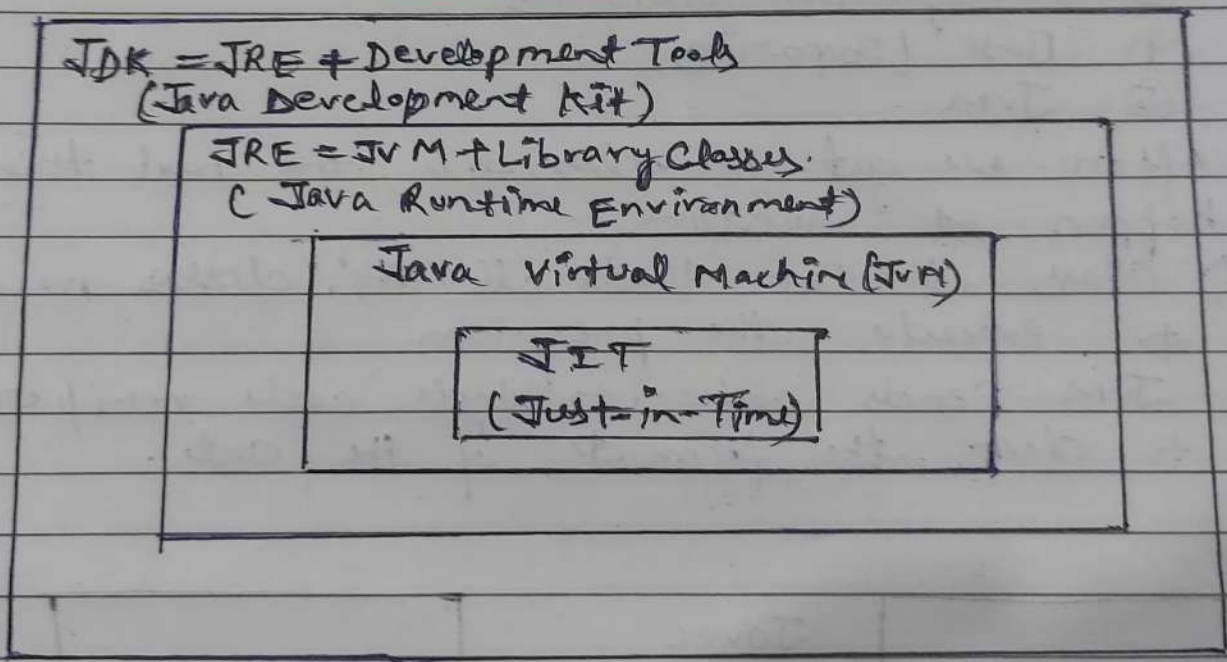 JDK = JRE + Development Tools
(Java Development Kit)
JRE = JVM + Library Classes.
( Java Runtime Environment)
Java Virtual Machine (JVM)
JIT
(Just-in-Time)